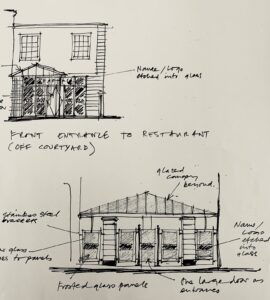 Name/Logo
etched into glass
FRONT ENTRANCE TO RESTAURANT
(OFF COURTYARD)
glazed
canopy
beyond.
stainless steel
Name/
Logo
etched
into
glass
glass
to panels
Frosted glass panels
One large door as
entrance